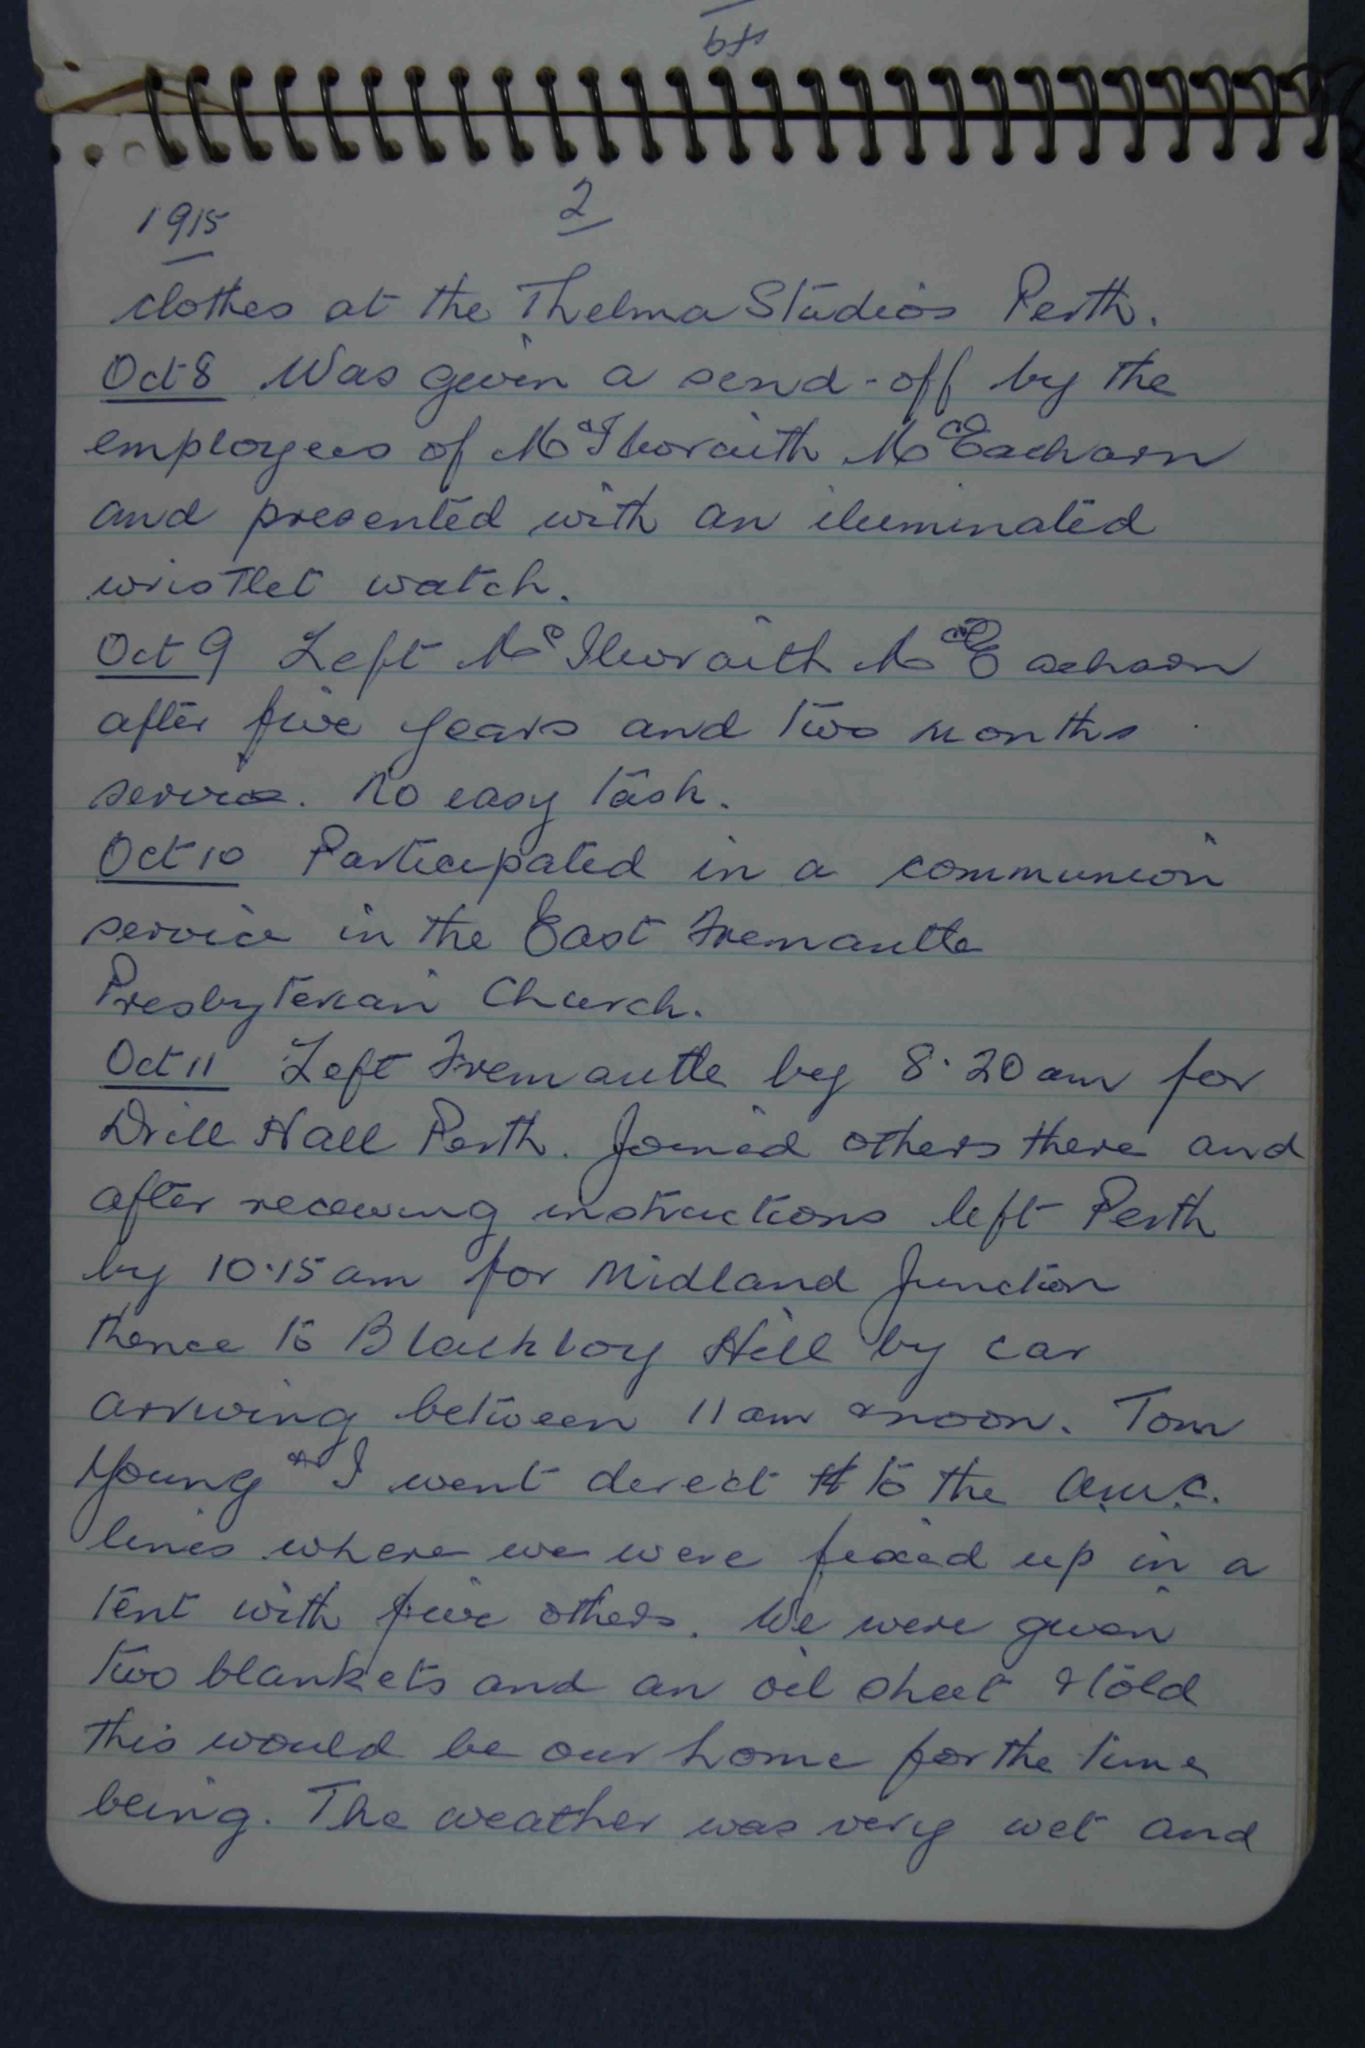 1915
2
clothes at the Thelma Studios Perth.
Oct 8 Was given a send-off by the
employees of McIlwraith McEacharn
and presented with an iluminated
wristlet watch.
Oct 9 Left McIlwraith McEacharn
after five years and two months
service. No easy task.
Oct 10 Participated in a communion
service in the East Fremantle
Presbyterian Church.
Oct 11 Left Fremantle by 8.20 am for
Drill Hall Perth. Joined others there and
after receiving instructions left Perth
by 10.15 am for Midland Junction
thence to Blackboy Hill by car
arriving between 11 am & noon. Tom
Young & I went direct to the A.M.C.
lines where we were fixed up in a
tent with five others. We were given
two blankets and an oil sheet & told
this would be our home for the time
being. The weather was very wet and